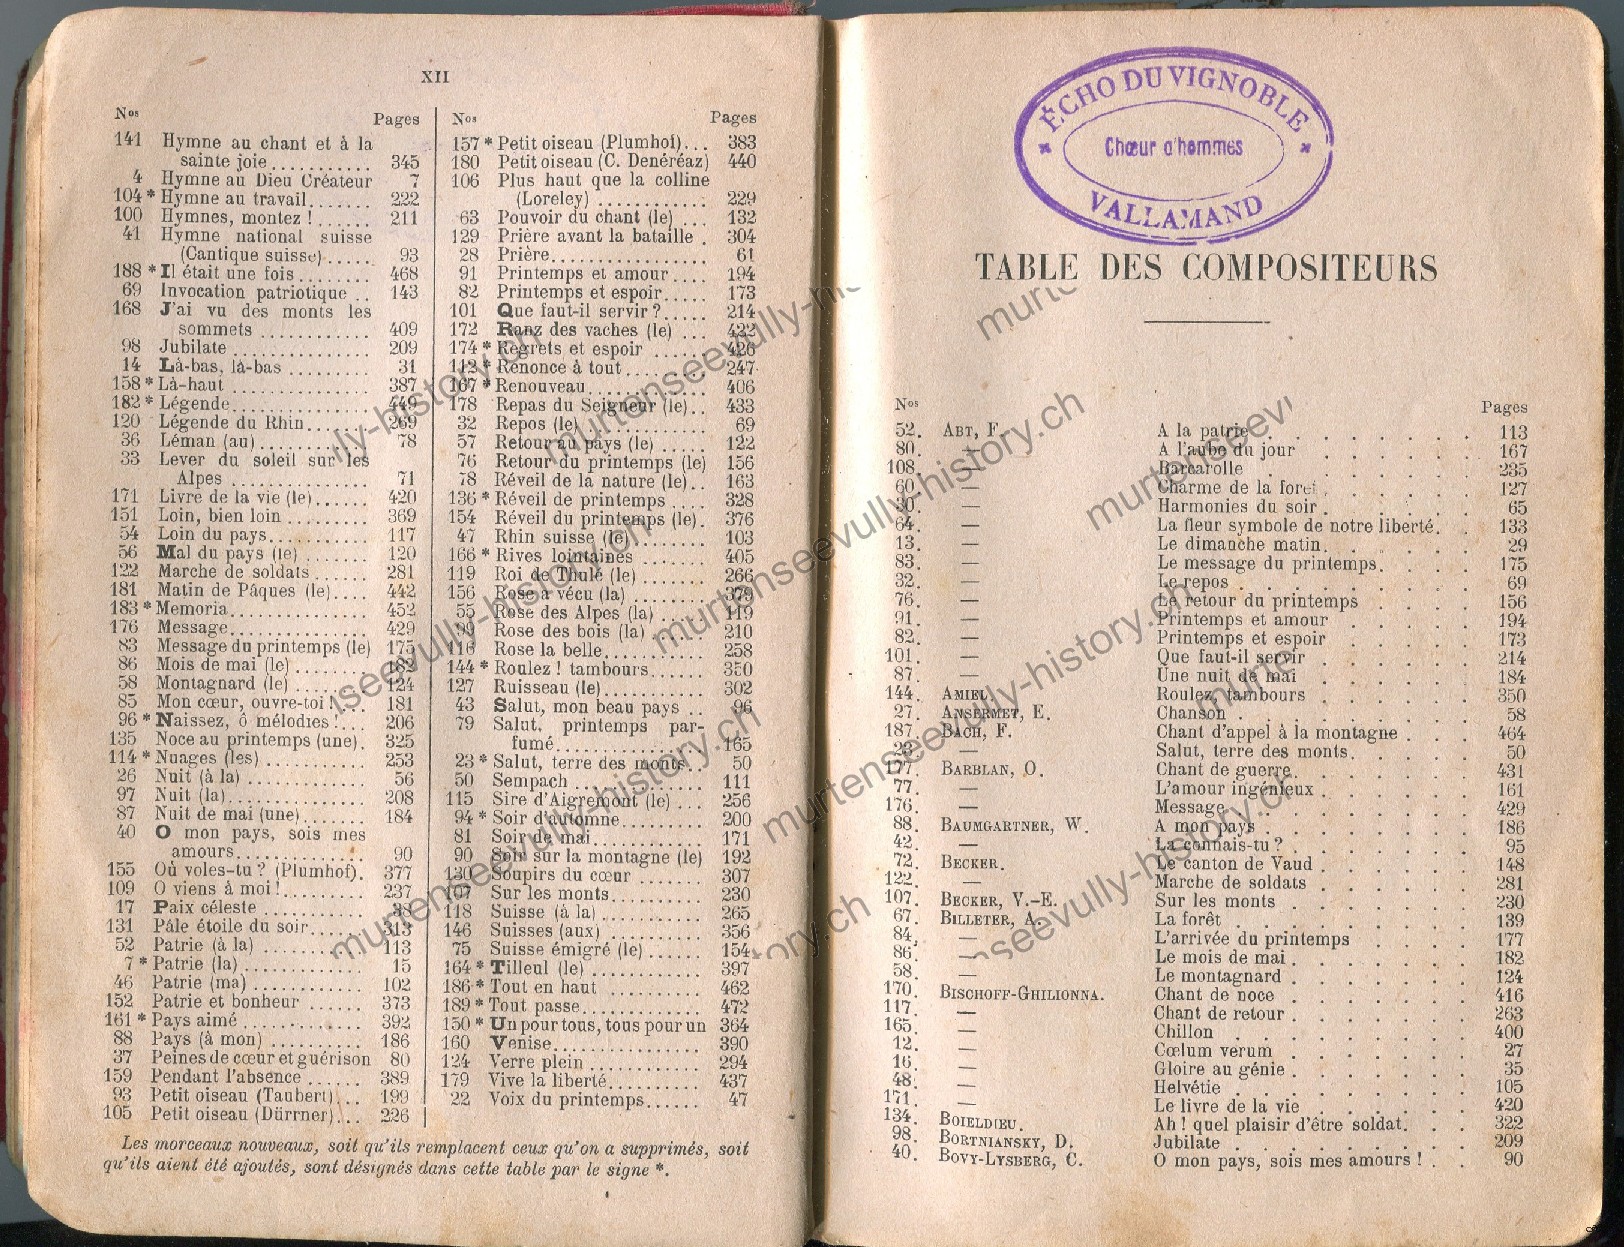 XII
Nos Pages
141 Hymne au chant et à la
sainte joie........... 345
4 Hymne au Dieu Créateur 7
104 * Hymne au travail....... 222
100 Hymnes, montez !...... 211
41 Hymne national suisse
(Cantique suisse)..... 93
188 * Il était une fois ........ 468
69 Invocation patriotique .. 143
168 J'ai vu des monts les
sommets ............ 409
98 Jubilate ............... 209
14 Là-bas, là-bas ......... 31
158 * Là-haut ............... 387
182 * Légende............... 449
120 Légende du Rhin....... 269
36 Léman (au) ............ 78
33 Lever du soleil sur les
Alpes ............... 71
171 Livre de la vie (le)...... 420
151 Loin, bien loin ......... 369
54 Loin du pays........... 117
56 Mal du pays (le) ....... 120
122 Marche de soldats ...... 281
181 Matin de Pâques (le).... 442
183 * Memoria............... 452
176 Message............... 429
83 Message du printemps (le) 175
86 Mois de mai (le) ........ 182
58 Montagnard (le) ........ 124
85 Mon cœur, ouvre-toi !... 181
96 * Naissez, ô mélodies !... 206
135 Noce au printemps (une). 325
114 * Nuages (les) ........... 253
26 Nuit (à la) ............ 56
97 Nuit (la)............... 208
87 Nuit de mai (une)....... 184
40 O mon pays, sois mes
amours.............. 90
155 Où voles-tu ? (Plumhof). 377
109 O viens à moi !......... 237
17 Paix céleste ........... 38
131 Pâle étoile du soir...... 313
52 Patrie (à la) ........... 113
7 * Patrie (la) ............. 15
46 Patrie (ma) ............ 102
152 Patrie et bonheur ...... 373
161 * Pays aimé ............. 392
88 Pays (à mon) .......... 186
37 Peines de cœur et guérison 80
159 Pendant l'absence ...... 389
93 Petit oiseau (Taubert)... 199
105 Petit oiseau (Dürrner)... 226
Nos Pages
157 * Petit oiseau (Plumhof)... 383
180 Petit oiseau (C. Denéréaz) 440
106 Plus haut que la colline
(Loreley) ............ 229
63 Pouvoir du chant (le) ... 132
129 Prière avant la bataille . 304
28 Prière................. 61
91 Printemps et amour .... 194
82 Printemps et espoir..... 173
101 Que faut-il servir ?..... 214
172 Ranz des vaches (le) ... 422
174 * Regrets et espoir ...... 426
112 * Renonce à tout ........ 247
167 * Renouveau............. 406
178 Repas du Seigneur (le).. 433
32 Repos (le) ............. 69
57 Retour au pays (le) ..... 122
76 Retour du printemps (le) 156
78 Réveil de la nature (le).. 163
136 * Réveil de printemps .... 328
154 Réveil du printemps (le). 376
47 Rhin suisse (le)........ 103
166 * Rives lointaines ....... 405
119 Roi de Thulé (le) ....... 266
156 Rose a vécu (la) ........ 379
55 Rose des Alpes (la) ..... 119
99 Rose des bois (la) ...... 210
116 Rose la belle........... 258
144 * Roulez ! tambours...... 350
127 Ruisseau (le)........... 302
43 Salut, mon beau pays .. 96
79 Salut, printemps par-
fumé................ 165
23 * Salut, terre des monts.. 50
50 Sempach .............. 111
115 Sire d'Aigremont (le) ... 256
94 * Soir d'automne......... 200
81 Soir de mai............ 171
90 Soir sur la montagne (le) 192
130 Soupirs du cœur ....... 307
107 Sur les monts.......... 230
118 Suisse (à la) ........... 265
146 Suisses (aux) .......... 356
75 Suisse émigré (le) ...... 154
164 * Tilleul (le) ............ 397
186 * Tout en haut .......... 462
189 * Tout passe............. 472
150 * Un pour tous, tous pour un 364
160 Venise................ 390
124 Verre plein ............ 294
179 Vive la liberté.......... 437
22 Voix du printemps...... 47
Les morceaux nouveaux, soit qu'ils remplacent ceux qu'on a supprimés, soit
qu'ils aient été ajoutés, sont désignés dans cette table par le signe *.
ÉCHO DU VIGNOBLE
Chœur d'hommes
VALLAMAND
TABLE DES COMPOSITEURS
Nos Pages
52. ABT, F. A la patrie . . . . . 113
80. — A l'aube du jour . . . . . 167
108. — Barcarolle . . . . . 235
60. — Charme de la forêt . . . . . 127
30. — Harmonies du soir . . . . . 65
64. — La fleur symbole de notre liberté. . 133
13. — Le dimanche matin. . . . . 29
83. — Le message du printemps. . . . 175
32. — Le repos . . . . . 69
76. — Le retour du printemps . . . . 156
91. — Printemps et amour . . . . 194
82. — Printemps et espoir . . . . 173
101. — Que faut-il servir . . . . . 214
87. — Une nuit de mai . . . . . 184
144. AMIEL. Roulez, tambours . . . . . 350
27. ANSERMET, E. Chanson . . . . . 58
187. BACH, F. Chant d'appel à la montagne . . . 464
23. — Salut, terre des monts. . . . . 50
177. BARBLAN, O. Chant de guerre. . . . . 431
77. — L'amour ingénieux . . . . . 161
176. — Message . . . . . 429
88. BAUMGARTNER, W. A mon pays . . . . . 186
42. — La connais-tu ? . . . . . 95
72. BECKER. Le canton de Vaud . . . . . 148
122. — Marche de soldats . . . . . 281
107. BECKER, V.-E. Sur les monts . . . . . 230
67. BILLETER, A. La forêt . . . . . 139
84. — L'arrivée du printemps . . . . 177
86. — Le mois de mai . . . . . 182
58. — Le montagnard . . . . . 124
170. BISCHOFF-GHILIONNA. Chant de noce . . . . . 416
117. — Chant de retour . . . . . 263
165. — Chillon . . . . . 400
12. — Cœlum verum . . . . . 27
16. — Gloire au génie . . . . . 35
48. — Helvétie . . . . . 105
171. — Le livre de la vie . . . . . 420
134. BOIELDIEU. Ah ! quel plaisir d'être soldat. . . 322
98. BORTNIANSKY, D. Jubilate . . . . . 209
40. BOVY-LYSBERG, C. O mon pays, sois mes amours ! . . 90
murtenseevully-history.ch